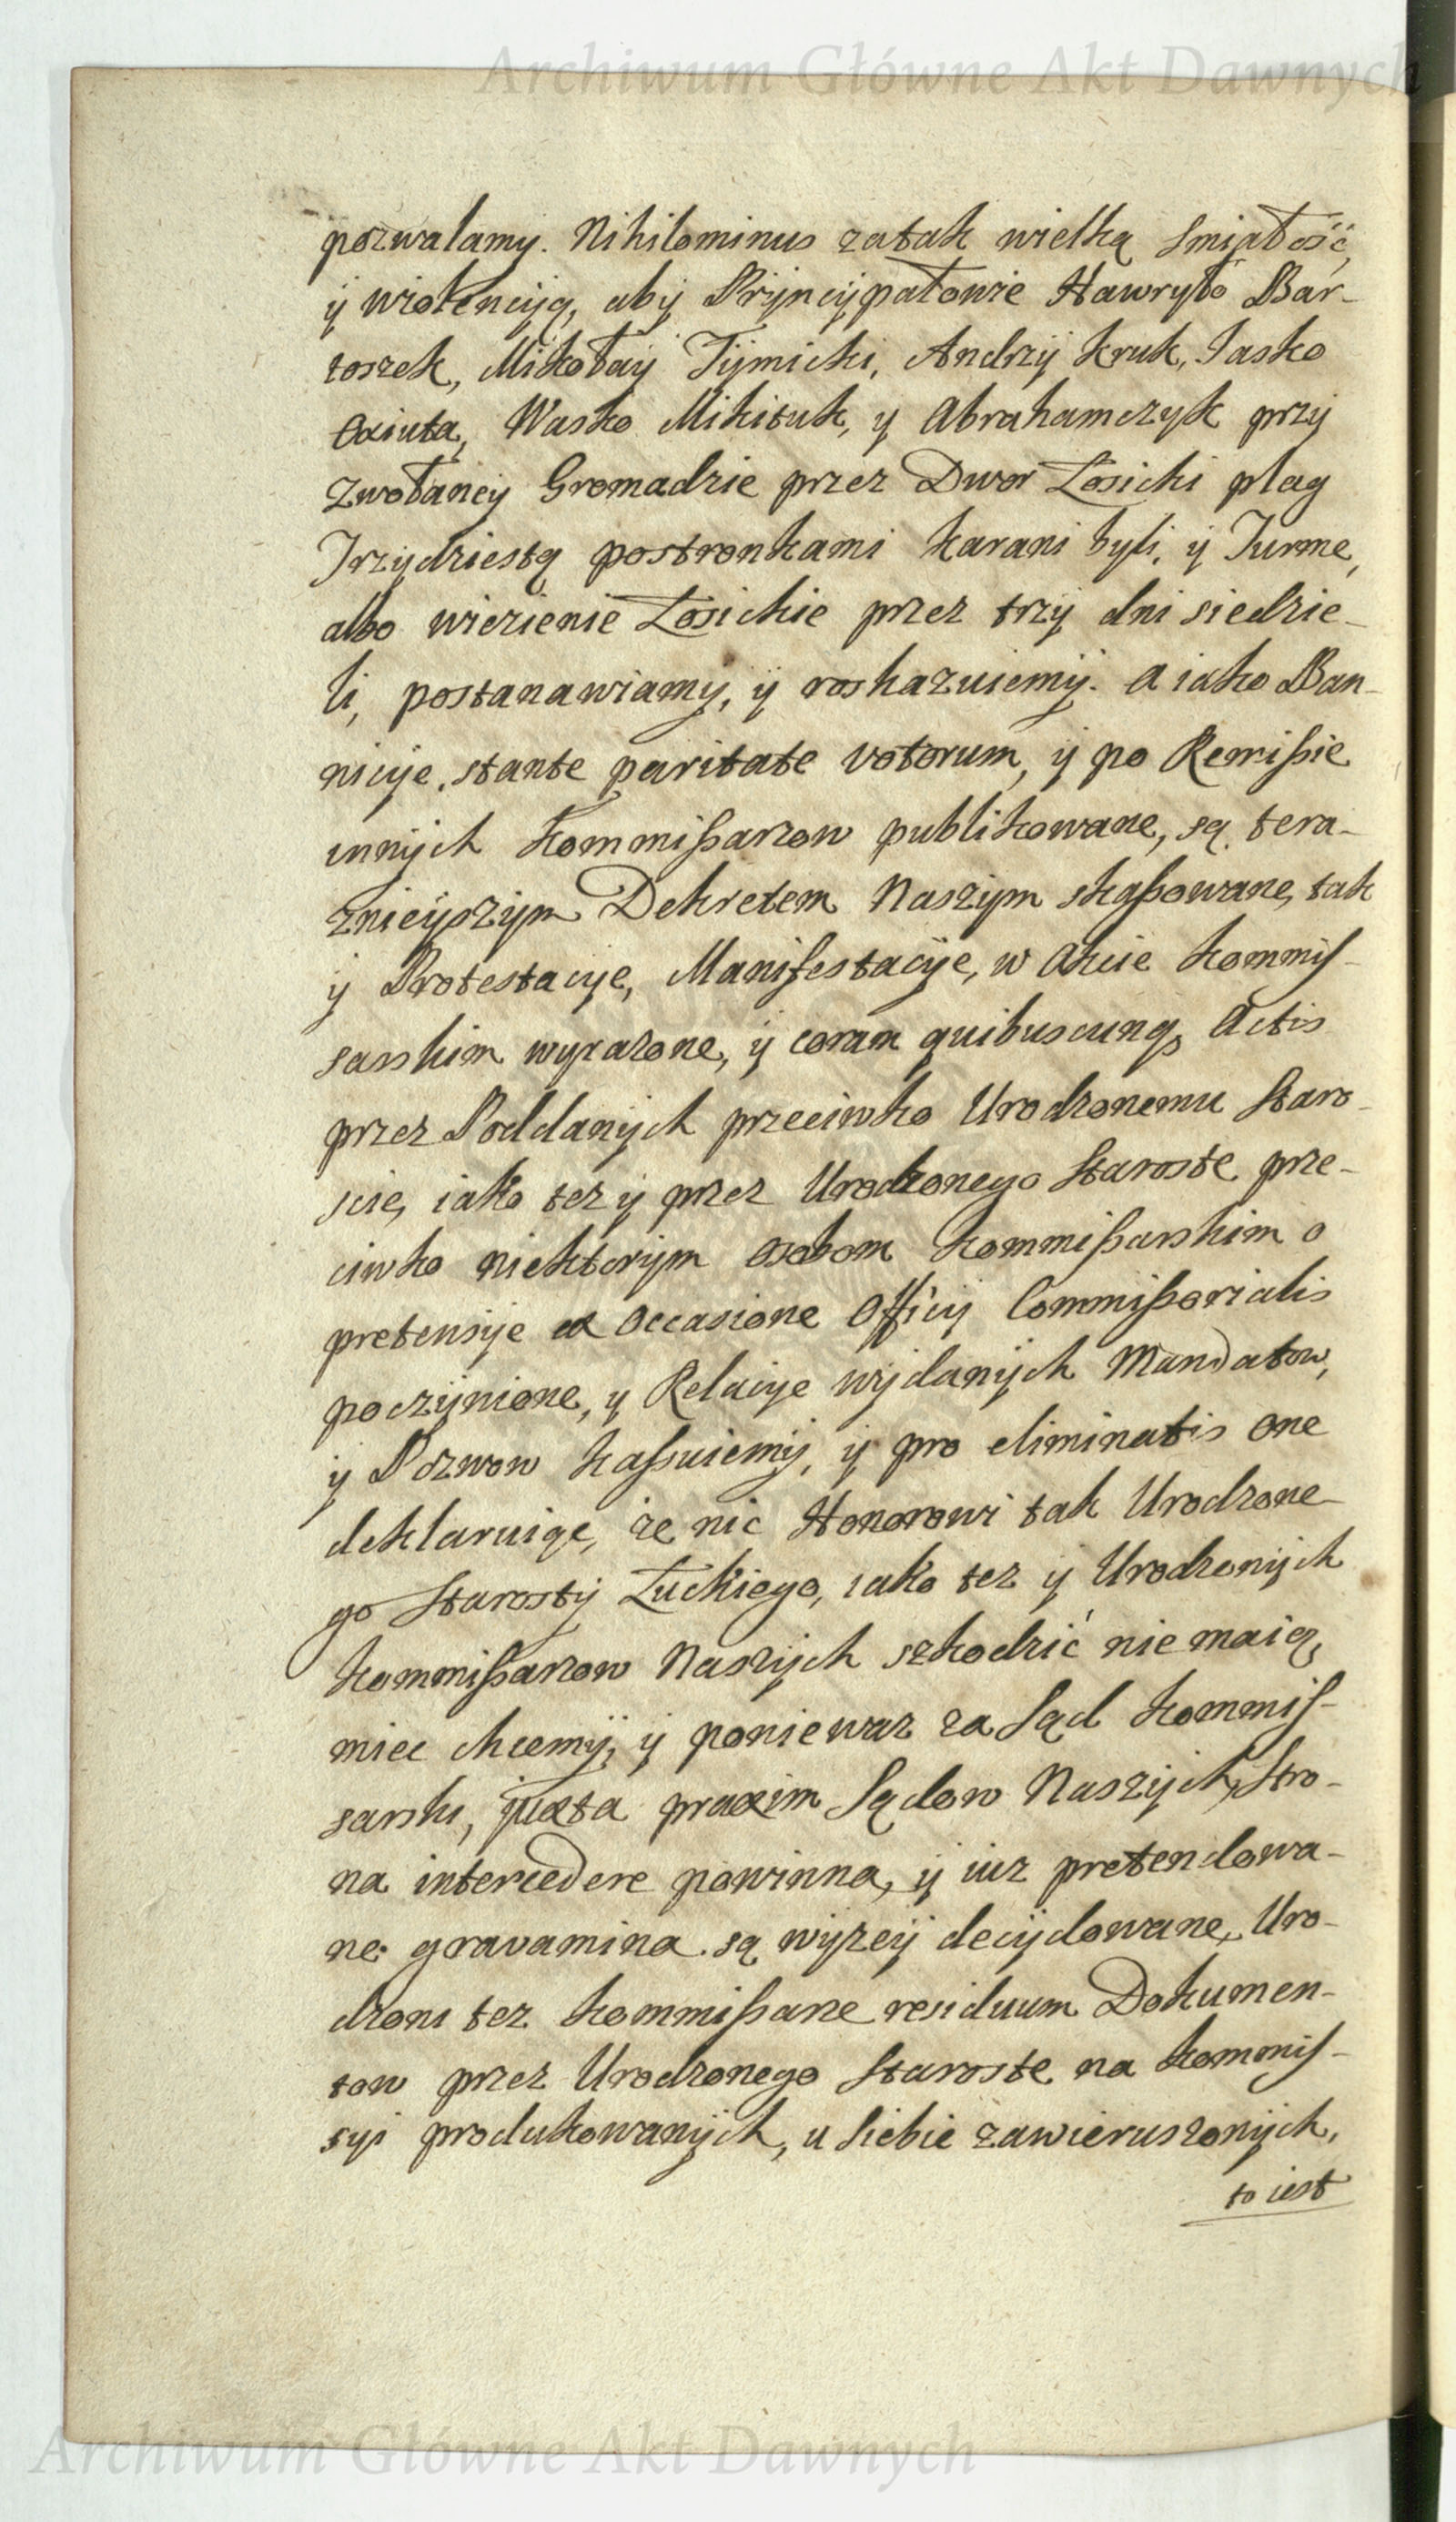 Archiwum Główne Akt Dawnych
pozwalamy. Nihilominus zatak wielką smiałość,
ÿ wiolencÿą, abÿ Prÿncÿpałowie Hawryło Bar-
toszek, Mikołaÿ Tÿmicki, Andrzÿ Kruk, Jasko
Oxiuta, Wasko Mikituk, y Abrahamczyk przÿ
zwołaneÿ Gromadzie przez Dwor Łosicki plag
Trzÿdziestą postronkami karani byli, ÿ Turme,
albo wiezienie Łosickie przez trzÿ dni siedzie-
li, postanawiamÿ, ÿ roskazuiemÿ. A iako Ban-
nicÿe, stante paritate votorum, ÿ po Remißie
innÿch Kommißarzow publikowane, są tera-
znieÿszÿm Dekretem Naszÿm skaßowane, tak
ÿ Protestacÿe, Manifestacÿe, w Akcie Kommis-
sarskim wyrazone, ÿ coram quibuscunq, Actis
przez Poddanÿch przeciwko Urodzonemu Staro-
scie, iako tez ÿ przez Urodzonego Staroste prze-
ciwko niektorÿm osobom Kommißarskim o
pretensÿe ex occasione Officÿ Commißorialis
poczÿnione, y Relacÿe wÿdanÿch Mandatow,
ÿ Pozwow kaßuiemÿ, ÿ pro eliminatis one
deklaruiąc, ze nic Honorowi tak Urodzone-
go Starostÿ Łuckiego, iako tez ÿ Urodzonÿch
Kommißarzow Naszÿch szkodzić nie maią,
miec chcemÿ, ÿ poniewaz za Sąd Kommis-
sarski, juxta praxim Sądow Naszÿch, Stro-
na intercedere powinna, ÿ iuz pretendowa-
ne gravamina są wÿzeÿ decÿdowane, Uro-
dzoni tez Kommißarze residuum Dokumen-
tow przez Urodzonego Staroste na Kommis-
syi produkowanÿch, u siebie zawieruszonÿch,
to iest
Archiwum Główne Akt Dawnych